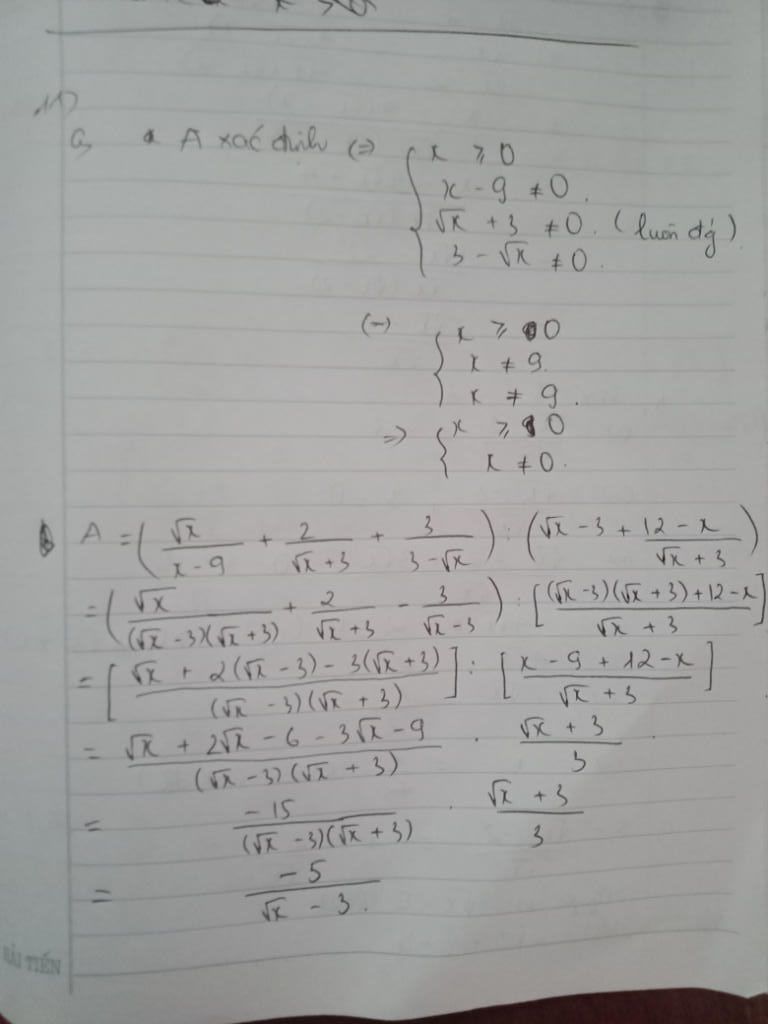 x ≥ 0
11)
a, A xác định (=> { x ≥ 0
x - 9 ≠ 0.
√x + 3 ≠ 0. (luôn đ/ý)
3 - √x ≠ 0.
(=) { x ≥ 0
x ≠ 9.
x ≠ 9.
=> { x ≥ 0
x ≠ 0.
A = ( √x / (x - 9) + 2 / (√x + 3) + 3 / (3 - √x) ) : ( √x - 3 + (12 - x) / (√x + 3) )
= ( √x / ((√x - 3)(√x + 3)) + 2 / (√x + 3) - 3 / (√x - 3) ) : [ ((√x - 3)(√x + 3) + 12 - x) / (√x + 3) ]
= [ (√x + 2(√x - 3) - 3(√x + 3)) / ((√x - 3)(√x + 3)) ] : [ (x - 9 + 12 - x) / (√x + 3) ]
= (√x + 2√x - 6 - 3√x - 9) / ((√x - 3)(√x + 3)) . (√x + 3) / 3
= -15 / ((√x - 3)(√x + 3)) . (√x + 3) / 3
= -5 / (√x - 3).
HẢI TIẾN